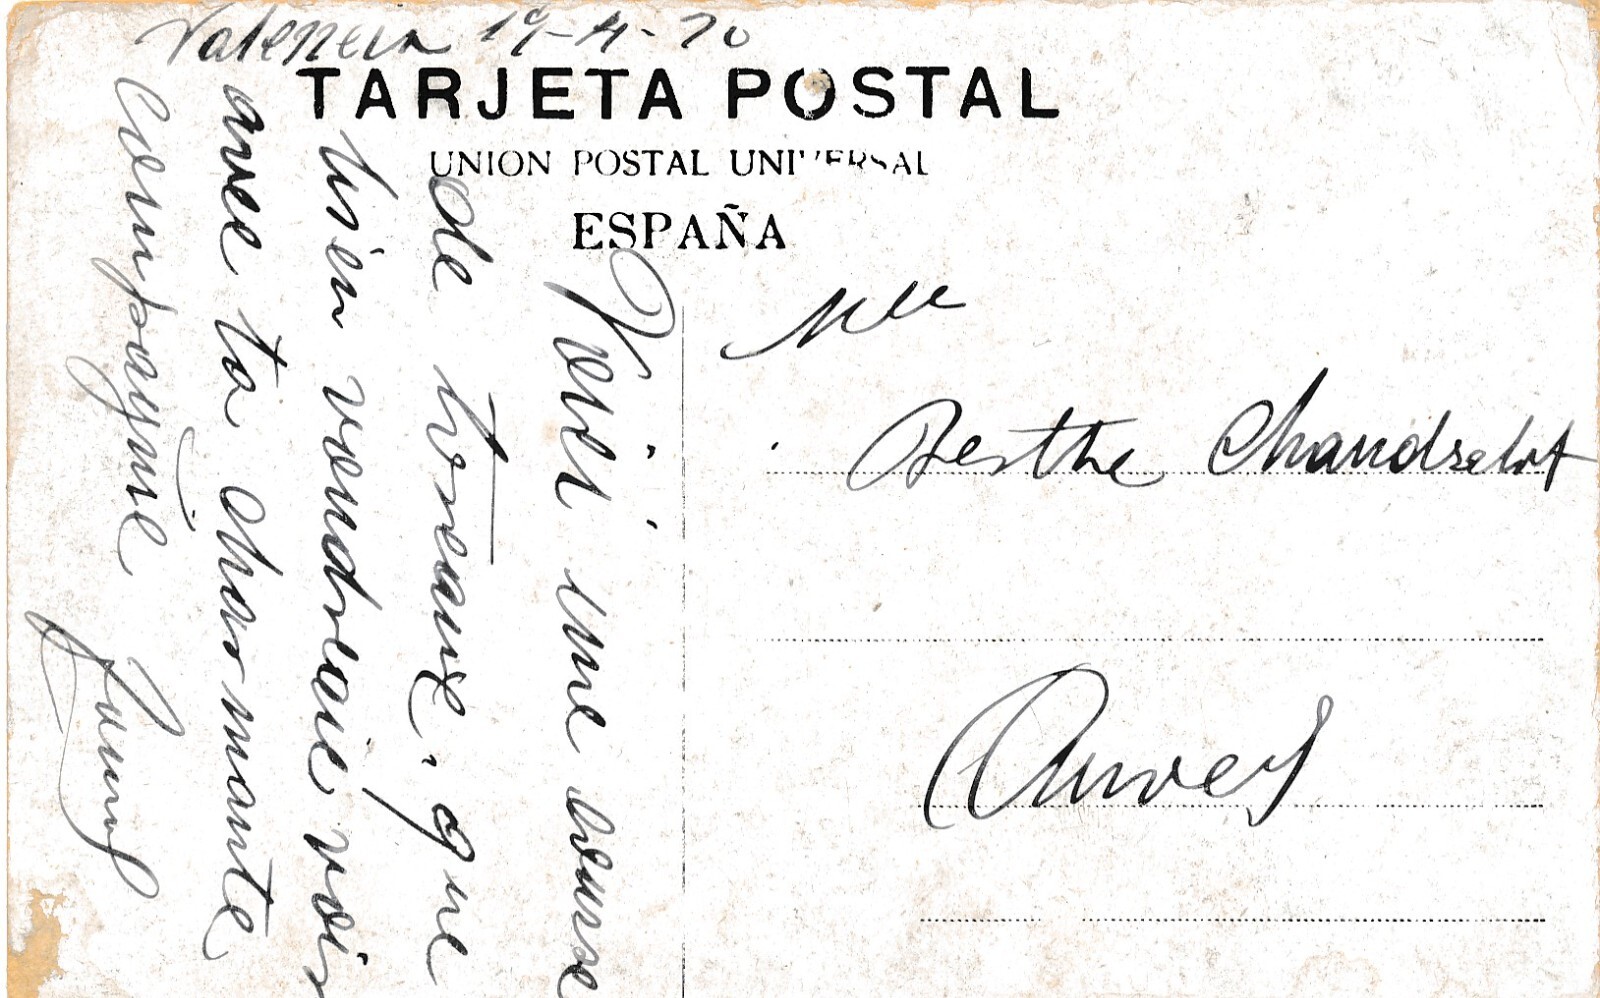 Valencia 19-4-20
TARJETA POSTAL
UNION POSTAL UNIVERSAL
ESPAÑA
Voici une course
de toreaux, que
bien voudraie voir
avec ta charmante
compagnie
Mlle
Berthe Chandselot
Anvers